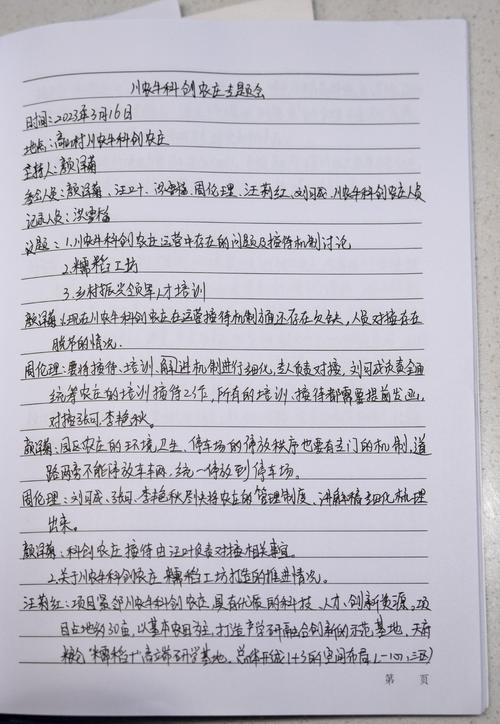 川农牛科创农庄专题会
时间:2023年3月16日
地点:高山村川农牛科创农庄
主持人:颜泽菊
参会人员:颜泽菊、汪叶、洪雪梅、周伦理、汪莉红、刘可成、川农牛科创农庄人员
记录人员:洪雪梅
议题:1.川农牛科创农庄运营中存在的问题及接待机制讨论
2.糯稻工坊
3.乡村振兴领军人才培训
颜泽菊:现在川农牛科创农庄在运营接待机制方面还存在欠缺,人员对接存在
脱节的情况.
周伦理:要将接待、培训、解说机制进行细化,专人负责对接,刘可成负责全面
统筹农庄的培训接待工作,所有的培训、接待都需要提前发函,
对接张可、李艳秋。
颜泽菊:园区农庄的环境卫生、停车场的停放秩序也要有专门的机制,道
路两旁不能停放车辆,统一停放到停车场。
周伦理:刘可成、张可、李艳秋尽快将农庄的管理制度、讲解精细化梳理
出来。
颜泽菊:科创农庄接待由汪叶负责对接相关事宜.
2.关于川农牛科创农庄糯稻工坊打造的推进情况。
汪莉红:项目紧邻川农牛科创农庄,具有优质的科技、人才、创新资源。项
目占地约30亩,以基本农田为主,打造产学研融合创新的示范基地、天府
粮仓"糯稻+"高端研学基地。总体形成1+3的空间布局(一心,三区)
第 页